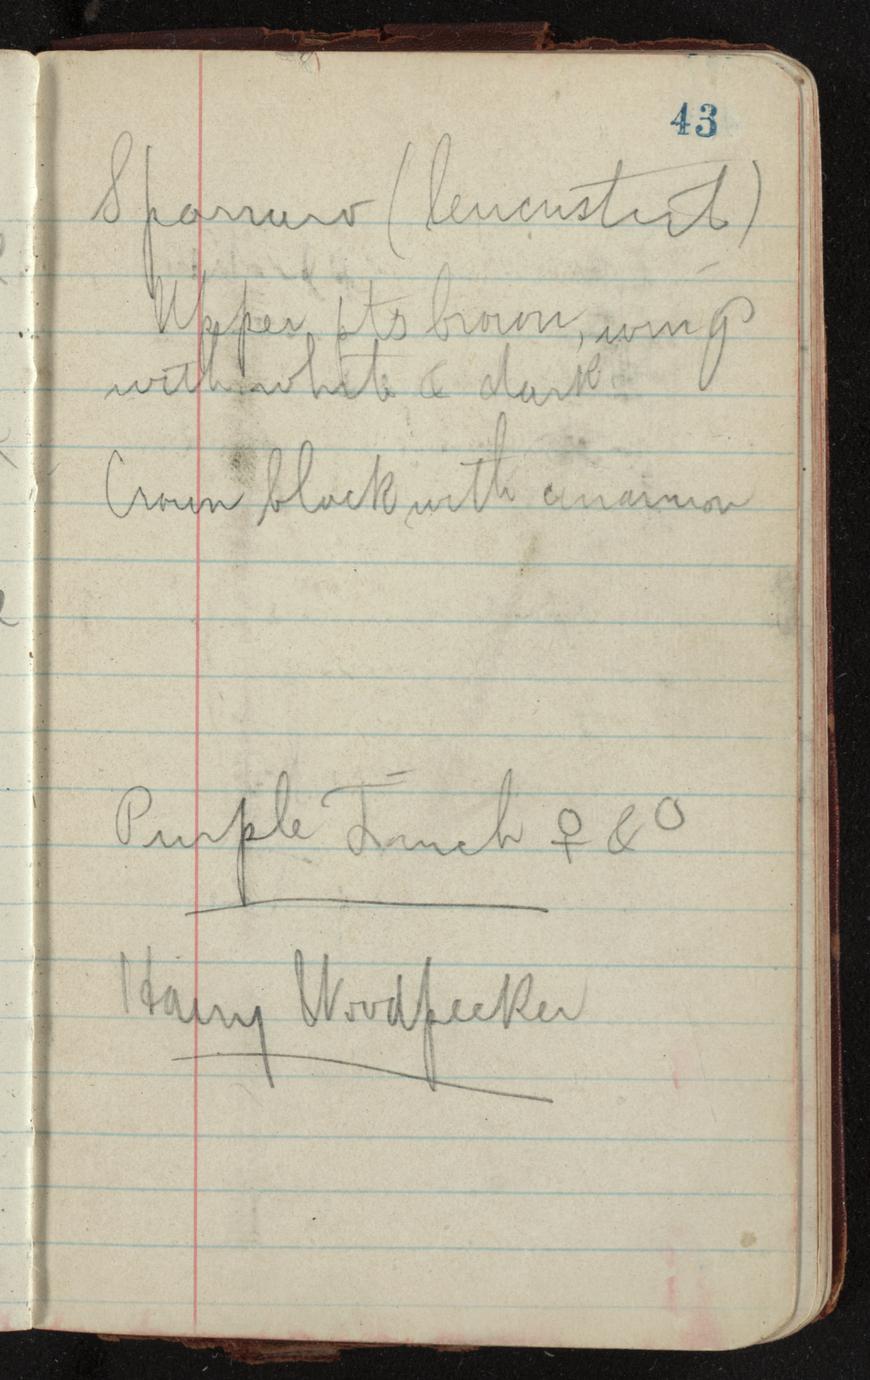 43
Sparrow (
Upper pts brown, wing
with white & dark
Crown black with cinnamon
Purple Finch ♀ &
Hairy Woodpecker